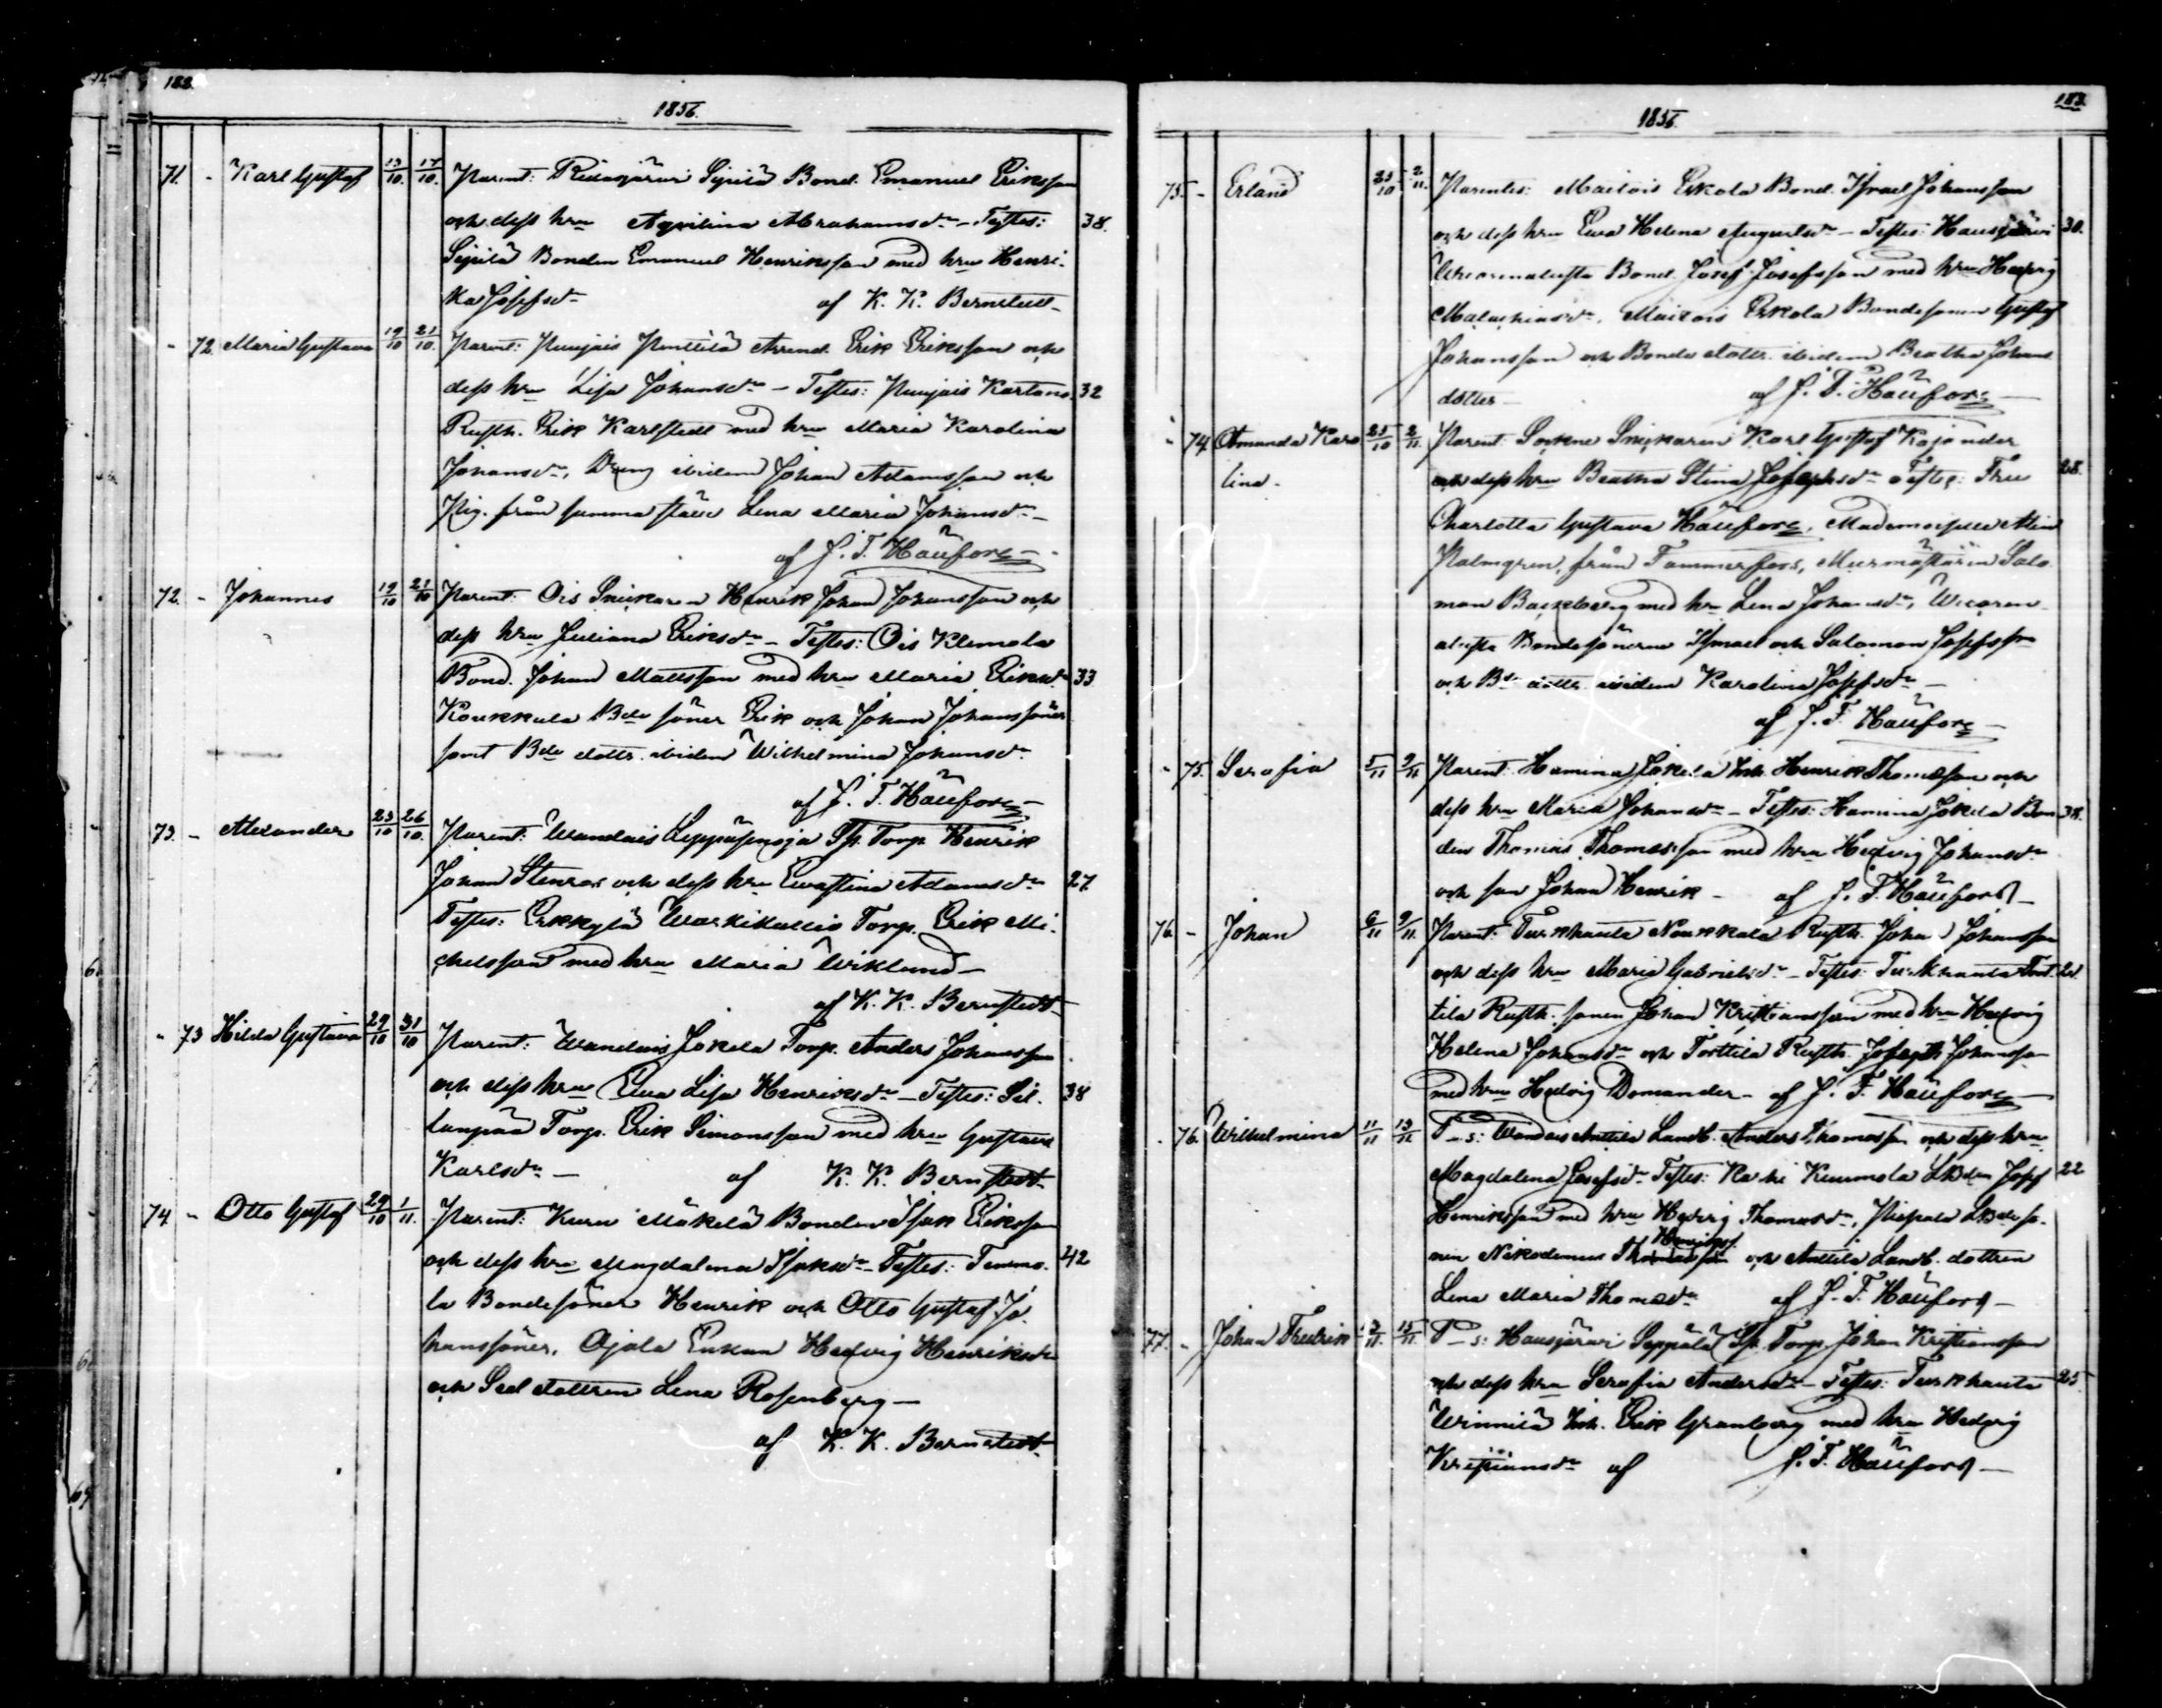 188.
1856.
71. - Karl Gustaf 13/10. 17/10. Parent: Ridasjärvi Sipilä Bond. Emanuel Eriksson
och dess hru Aqvilina Abrahamsdr - Testes: 38.
Sipilä Bonden Emanuel Henriksson med hru Henri-
ka Josefsdr af K. K. Bernstedt -
- 72. Maria Gustava 19/10 21/10. Parent: Puujais Penttilä Arrend. Erik Eriksson och
dess hru Lisa Johansdr - Testes: Puujais Kartano 32
Rusth. Erik Karlstedt med hru Maria Karolina
Johansdr, Dreng ibidem Johan Adamsson och
Pig. från samma ställe Lena Maria Johansdr -
af J. T. Haufors -
72. - Johannes 19/10 21/10 Parent: Ois Snickaren Henrik Johan Johansson och
dess hru Juliana Eriksdr - Testes: Ois Klemola
Bond. Johan Mattsson med hru Maria Eriksdr 33
Koukkula Bde söner Erik och Johan Johanssöner
samt Bde dottr. ibidem Wilhelmina Johansdr
af J. T. Haufors -
73. - Alexander 23/10 26/10. Parent: Wandais Leppäsenoja Sp. Torp. Henrik
Johan Stenros och dess hru Evastina Adamsdr 27
Testes: Erkkylä Warkikallio Torp. Erik Mi-
chelsson med hru Maria Wiklund -
af K. K. Bernstedt -
- 73 Hilda Gustava 29/10 31/10 Parent: Wandais Jokela Torp. Anders Johansson
och dess hru Eva Lisa Henriksdr - Testes: Sil- 38
lanpää Torp. Erik Simonsson med hru Gustava
Karlsdr - af K. K. Bernstedt -
74 - Otto Gustaf 29/10 1/11. Parent: Kuru Mäkelä Bonden Isak Eriksson
och dess hru Magdalena Isaksdr - Testes: Temmo- 42
la Bondesöner Henrik och Otto Gustaf Jo-
hanssöner, Ojala Enkan Hedvig Henriksdr
och Sold. dottren Lena Rosenberg -
af K. K. Bernstedt -
189.
1856.
75. - Erland 23/10 2/11. Parentes: Maitois Erkola Bond. Israel Johansson
och dess hru Eva Helena Augustsdr - Testes: Hausjärvi 30.
Bond. Josef Josefsson med hru Hedvig
Malachiasdr, Maitois Erkola Bondesonen Gustaf
Johansson och Bonde dottr. ibidem Beatha Johans
dotter - af J. T. Haufors -
- 74 Amanda Karo 23/10 2/11. Parent: Sockne Snickaren Karl Gustaf Kajander
lina - och dess hru Beatha Stina Josephsdr Testes: Fru 28.
Charlotta Gustava Haufors, Mademoiselle
Palmgren, från Tammerfors, Murmästaren Salo
mon Backberg med hr Lena Johansdr,
Bondesönerne Ismael och Salomon Josefss
och Bde dottr. ibidem Karolina Josefsdr -
af J. T. Haufors -
- 75. Serafia 5/11 9/11 Parent: Hamina Jokela Inh. Henrik Thomasson och
dess hru Maria Johansdr - Testes: Hamina Jokela Bon 38.
den Thomas Thomasson med hru Hedvig Johansdr
och son Johan Henrik - af J. T. Haufors -
76. - Johan 6/11 9/11. Parent: Turkhauta Noukkala Rusth. Johan Johansson
och dess hru Maria Gabrielsdr - Testes: Turkhauta Tort
tila Rusth. sonen Johan Kristiansson med hru Hedvig
Helena Johansdr och Torttila Rusth. Joseph Johansson
med hru Hedvig Domander - af J. T. Haufors -
- 76. Wilhelmina 11/11 13/11. P-s: Wandais Anttila Landb. Anders Thomasson och dess hru
Magdalena Josefsdr Testes: Karhi Keurmola LBden Josef 22
Henriksson med hru Hedvig Thomasdr, LBde so-
nen Nikodemus Henrikss. och Anttila Landb. dottren
Lena Maria Thomasdr af J. T. Haufors -
77. - Johan Fredrik 13/11. 15/11. P-s: Hausjärvi Seppälä Sp. Torp. Johan Kristiansson
och dess hru Serafia Andersdr - Testes: Turkhauta 25.
Winnilä Inh. Erik Granberg med hru Hedvig
Kristiansdr af J. T. Haufors -